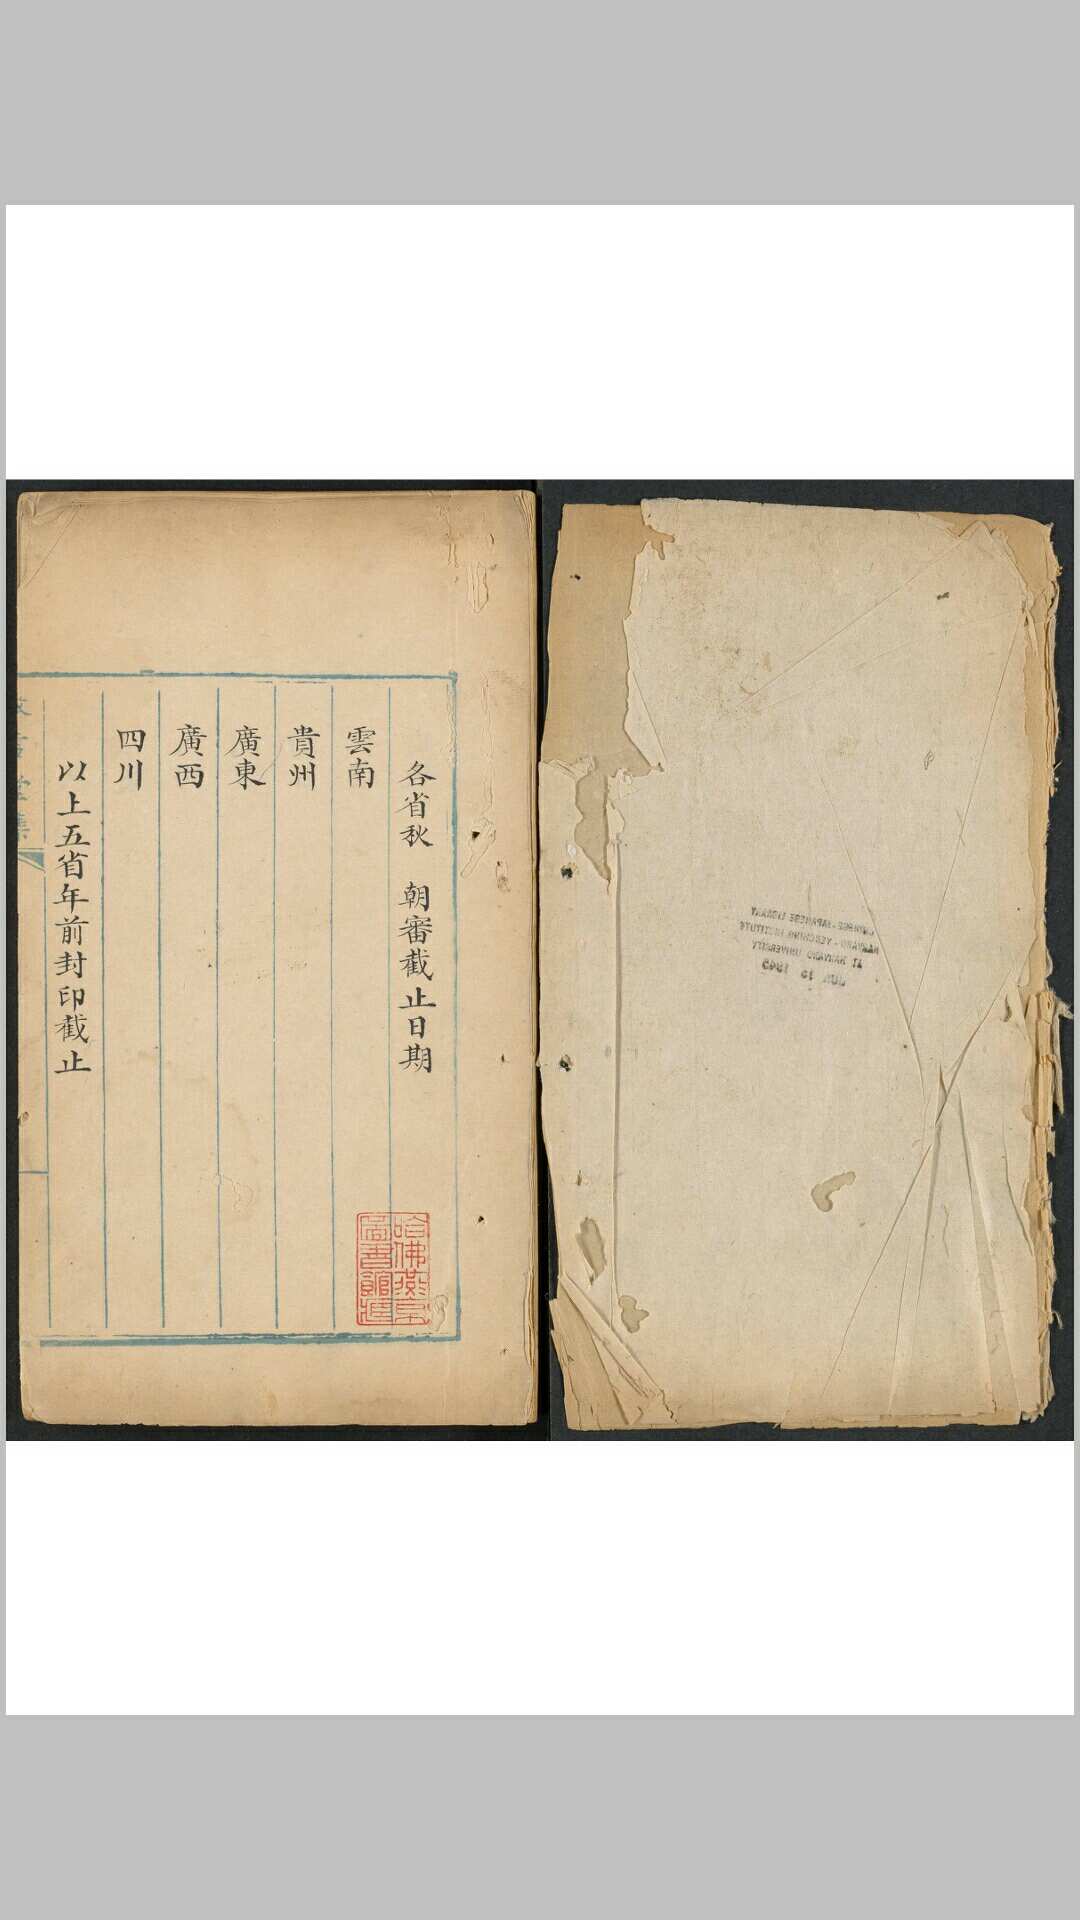 各省秋 朝審截止日期
雲南
貴州
廣東
廣西
四川
以上五省年前封印截止
哈佛燕京
圖書館藏
CHINESE-JAPANESE LIBRARY
HARVARD-YENCHING INSTITUTE
AT HARVARD UNIVERSITY